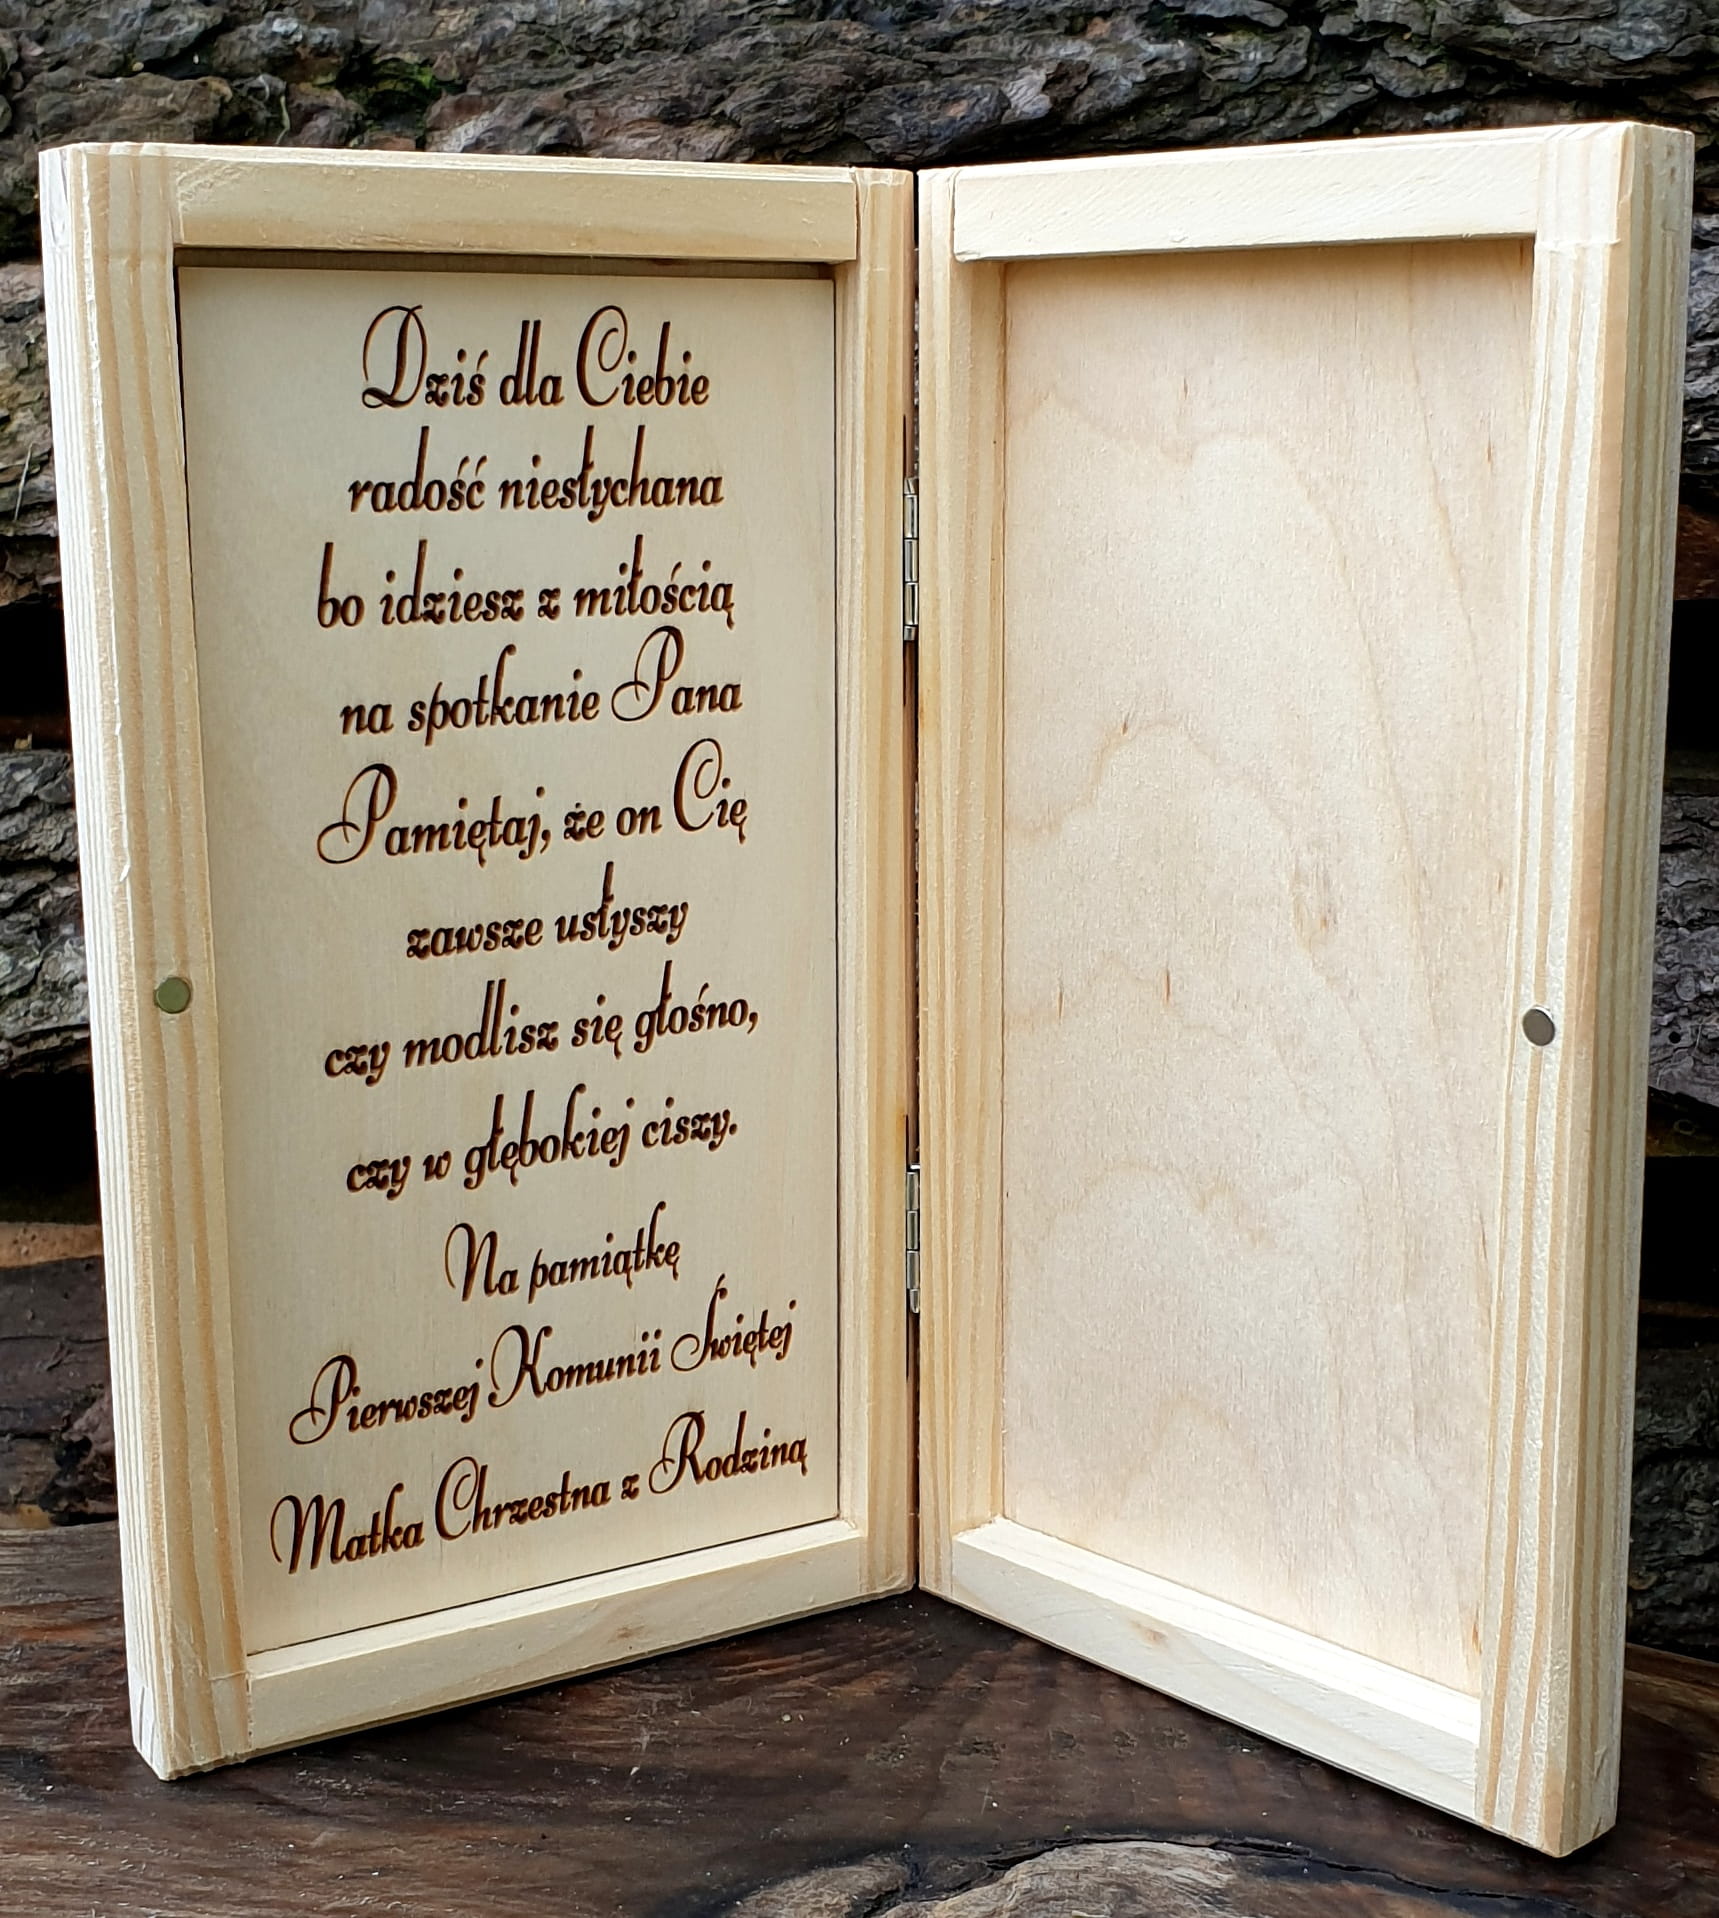 Dziś dla Ciebie
radość niesłychana
bo idziesz z miłością
na spotkanie Pana
Pamiętaj, że on Cię
zawsze usłyszy
czy modlisz się głośno,
czy w głębokiej ciszy.
Na pamiątkę
Pierwszej Komunii Świętej
Matka Chrzestna z Rodziną